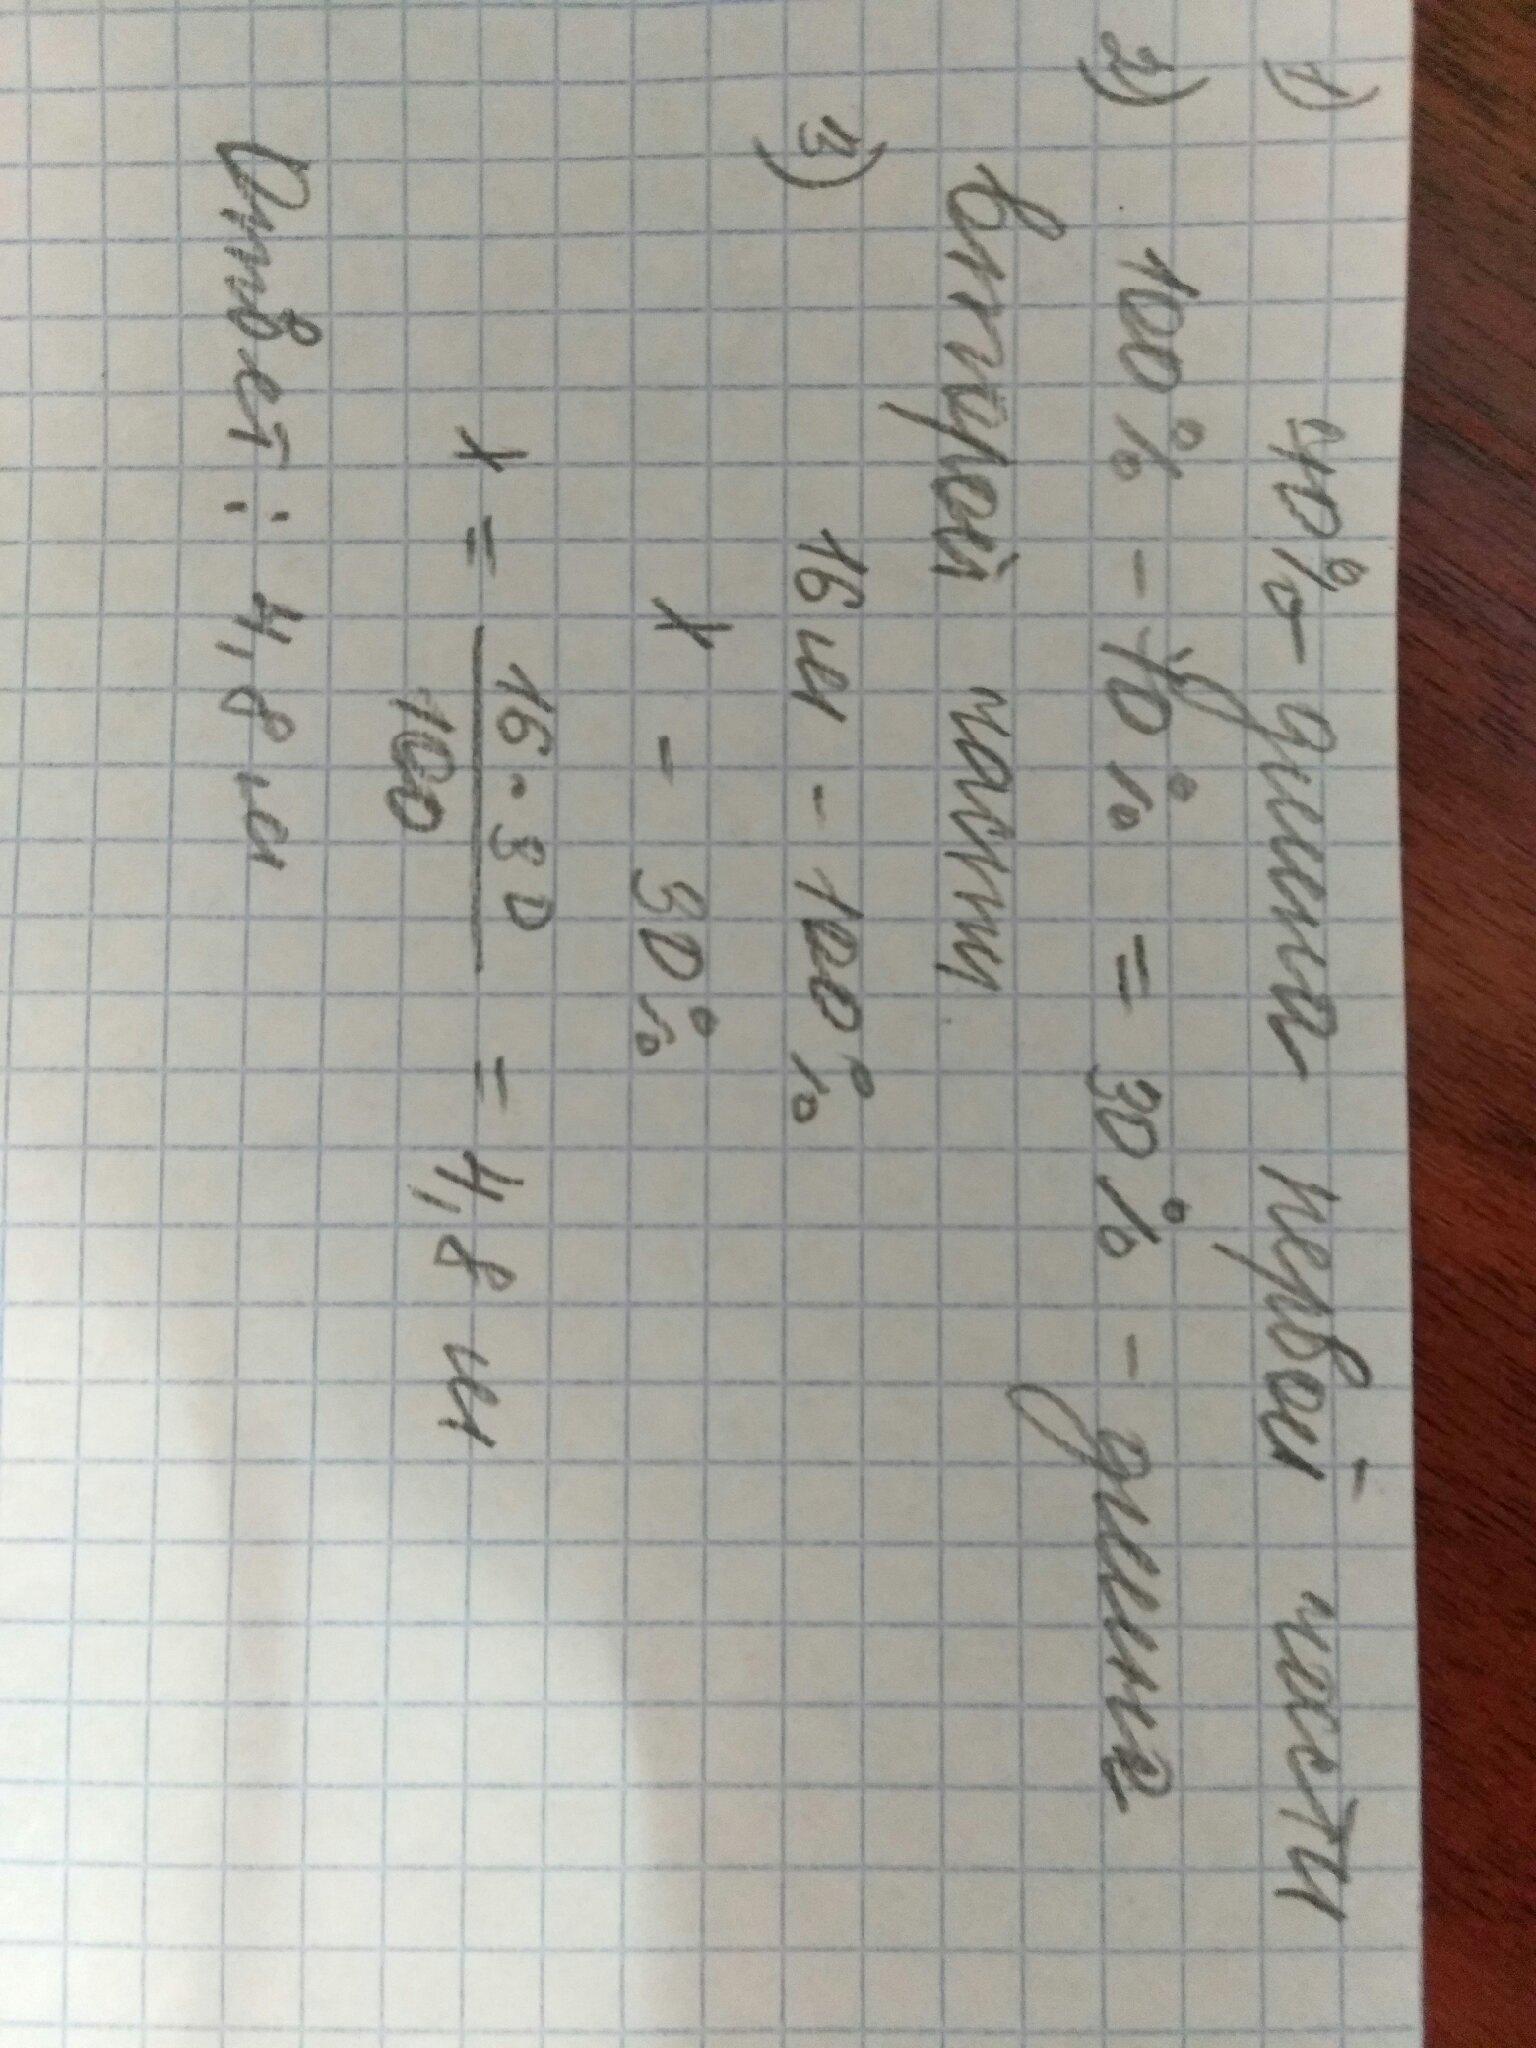 1) 70% - длина первой части
2) 100% - 70% = 30% - длина
второй части
3) 16 м - 100%
x - 30%
x = 16 · 30 / 100 = 4,8 м
Ответ: 4,8 м